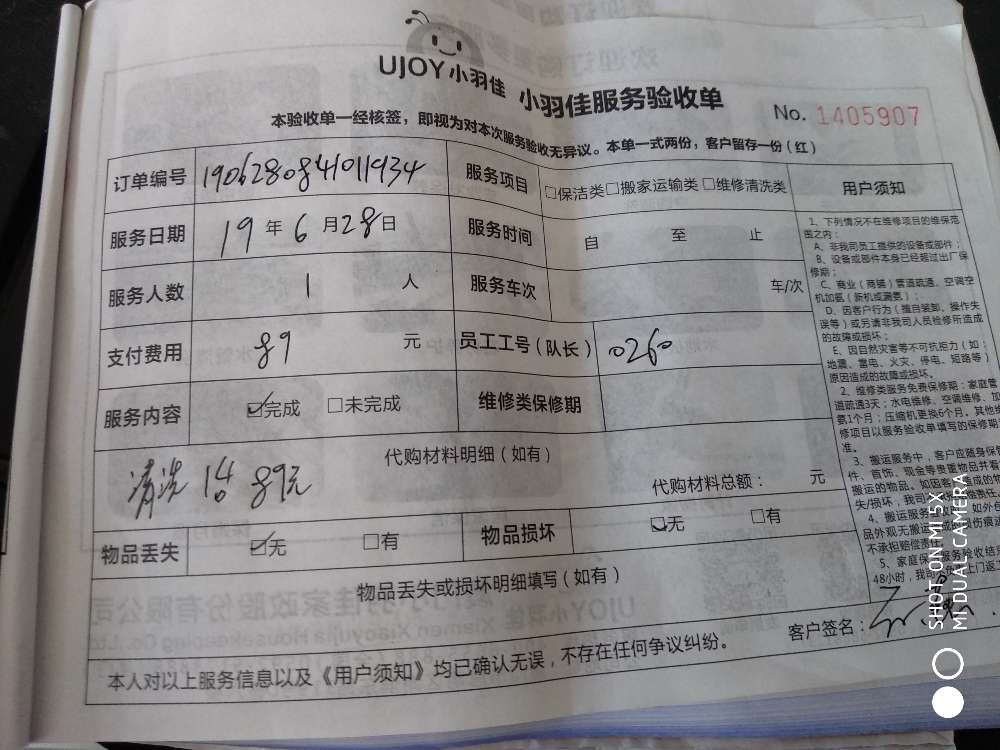 UJOY小羽佳 小羽佳服务验收单 No. 1405907
本验收单一经核签，即视为对本次服务验收无异议。本单一式两份，客户留存一份（红）
订单编号 190628084011934 服务项目 □保洁类□搬家运输类□维修清洗类 用户须知
服务日期 19年6月28日 服务时间 自 至 止
服务人数 1 人 服务车次 车/次
支付费用 89 元 员工工号（队长） 0260
服务内容 ☑完成 □未完成 维修类保修期
代购材料明细（如有）
清洗 89元
代购材料总额： 元
物品丢失 ☑无 □有 物品损坏 ☑无 □有
物品丢失或损坏明细填写（如有）
客户签名：
本人对以上服务信息以及《用户须知》均已确认无误，不存在任何争议纠纷。
1、下列情况不在维修项目的维保范
围之内：
A、非我司员工提供的设备或部件；
B、设备或部件本身已经超过出厂保
修期；
C、商业（商铺）管道疏通、空调空
机加氨（新机或漏氨）；
D、因客户行为（擅自装卸、操作失
误等）或另请非我司人员检修所造成
的故障或损坏；
E、因自然灾害等不可抗拒力（如：
地震、雷电、火灾、停电、短路等）
原因造成的故障或损坏。
2、维修类服务免费保修期：家庭管
道疏通3天；水电维修、空调维修、加
氨1个月；压缩机更换6个月。其他维
修项目以服务验收单填写的保修期
准。
3、搬运服务中，客户应随身保管
件、首饰、现金等贵重物品并看
搬运的物品。如因客 造成的物
失/损坏，我司 偿责任
4、搬运服务 如外包
品外观无搬运 损伤痕迹
不承担赔偿责任
5、家庭保 服务验收结
48小时，我司 上门返工
SHOT ON MI 5X
MI DUAL CAMERA